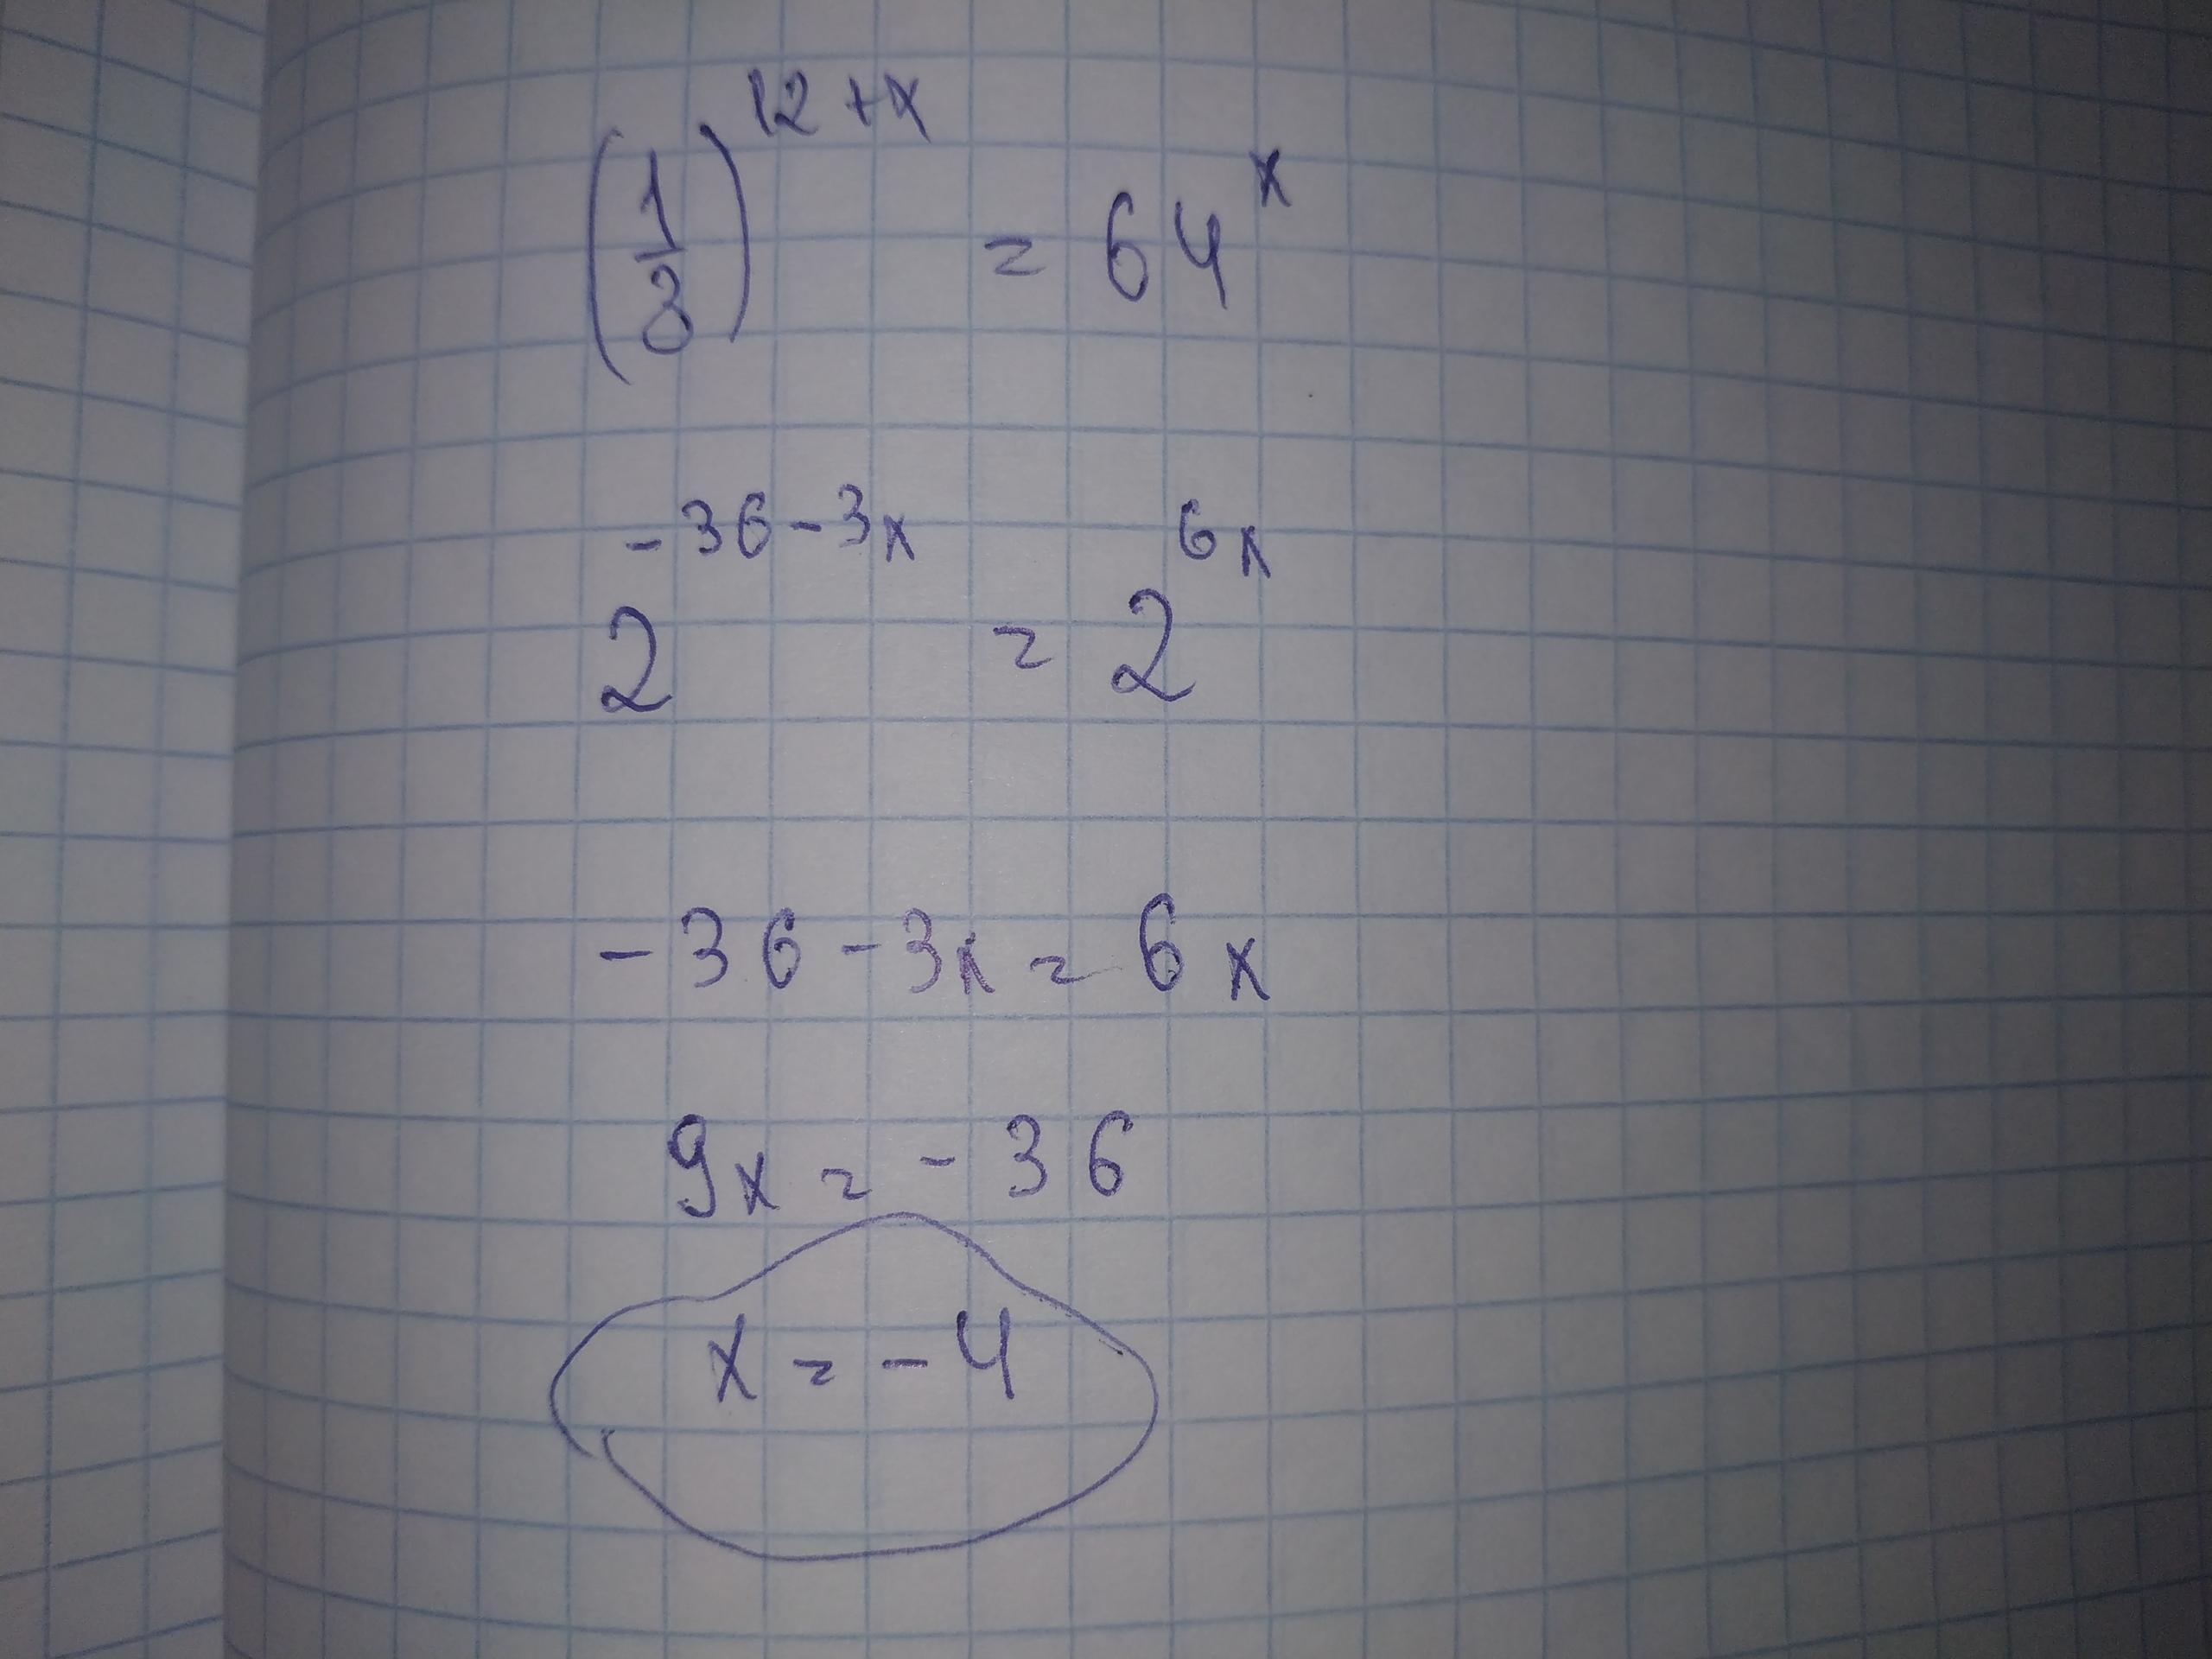 (1/8)^(12+x) = 64^x
2^(-36-3x) = 2^(6x)
-36-3x=6x
9x=-36
x=-4